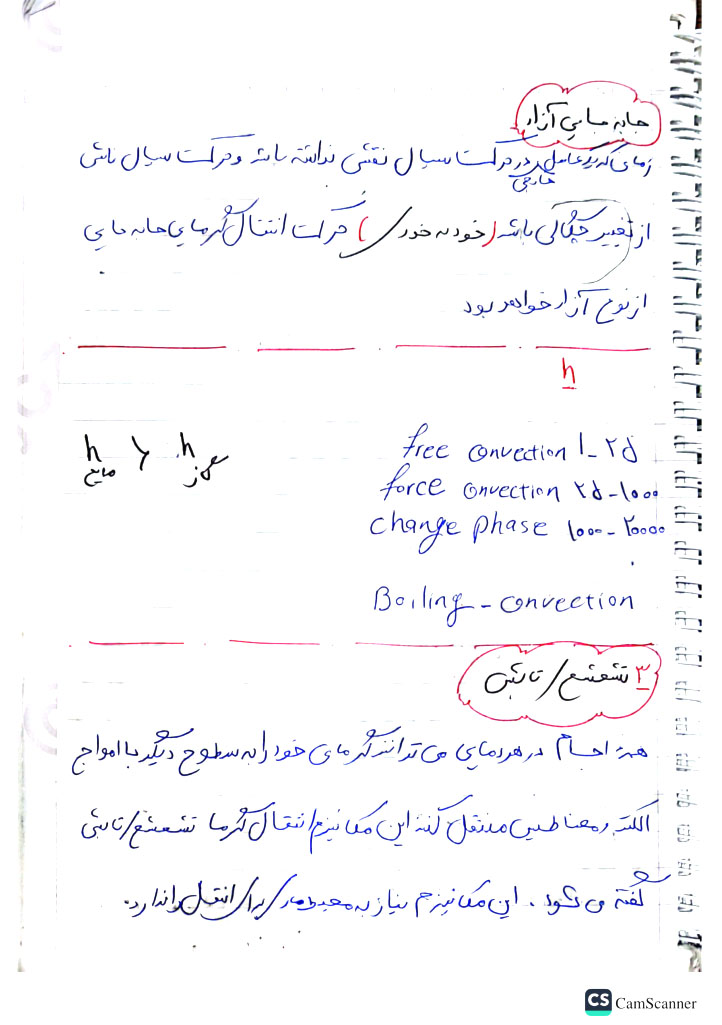 جابه جایی آزاد
زمانی که یک عامل خارجی در حرکت سیال نقشی نداشته باشد و حرکت سیال ناشی
از تغییر چگالی باشد (خود به خودی) حرکت انتقال گرمای جابه جایی
از نوع آزاد خواهد بود
h
free convection ۱-۲۵
force convection ۲۵-۱۰۰۰
change phase ۱۰۰۰-۲۰۰۰۰
h مایع > h گاز
Boiling - convection
۳ تشعشع/تابشی
همه اجسام در هر دمایی می توانند گرمای خود را به سطوح دیگر با امواج
الکترومغناطیس منتقل کنند این مکانیزم انتقال گرما تشعشع/تابشی
گفته می شود. این مکانیزم نیاز به محیط مادی برای انتقال ندارد.
CS CamScanner